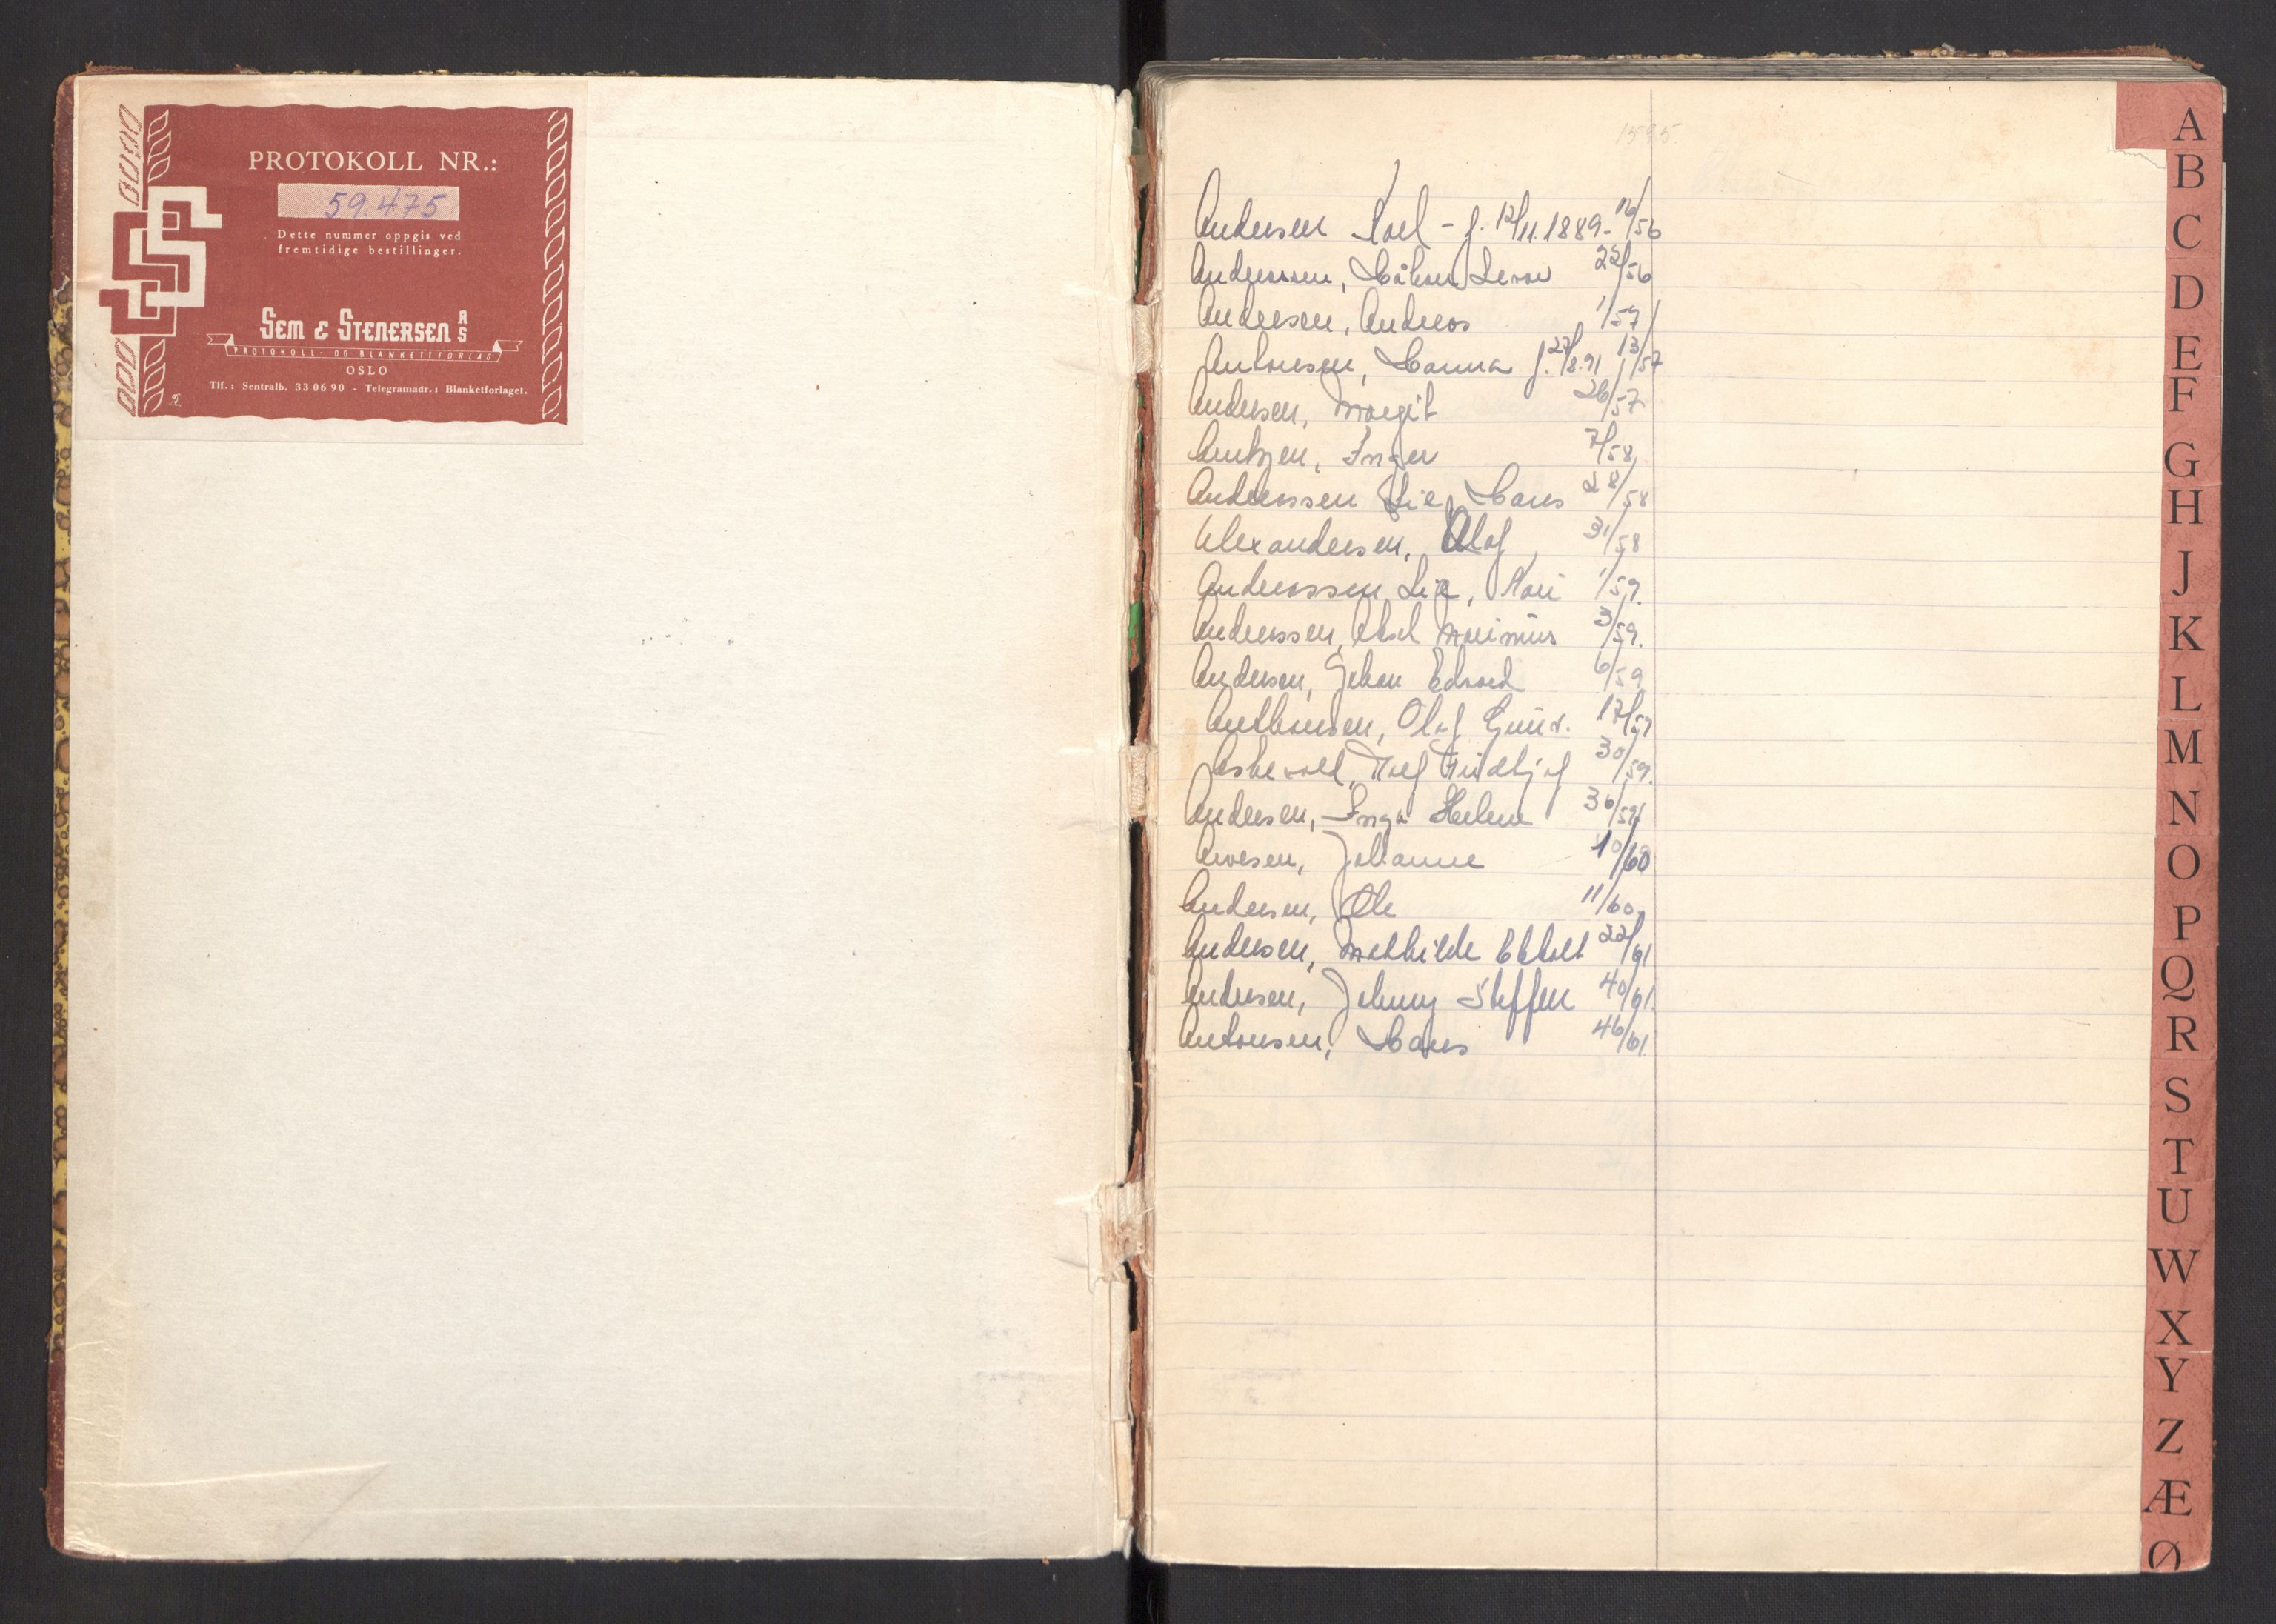 PROTOKOLL NR.:
59.475
Dette nummer oppgis ved
fremtidige bestillinger.
SEM & STENERSEN A/S
PROTOKOLL- OG BLANKETTFORLAG
OSLO
Tlf.: Sentralb. 33 06 90 - Telegramadr.: Blanketforlaget.
Andersen Karl - f. 12/11.1889. 16/56
Andreassen, Håkon 22/56
Andresen, Andreas 1/57
Antonsen, Hanna f. 27/8.91 13/57
Andersen, Margit 26/57
Arntzen, Inger 7/58
Andreassen Lie, Hans 28/58
Alexandersen, Olaf 31/58
Andreassen Lie, Kari 1/59.
Andreassen, Aksel Marinius 3/59.
Andersen, Johan Edvard 6/59
Anthonsen, Olaf Gunv. 17/59
Askevold, Fridtjof 30/59.
Andresen, Inga Helene 36/59
Arvesen, Johanne 10/60
Andersen, Ole 11/60
Andersen, Mathilde 22/61
Andersen, Johnny Steffen 40/61.
Antonsen, Hans 46/61.
A
B
C
D
E
F
G
H
J
K
L
M
N
O
P
Q
R
S
T
U
W
X
Y
Z
Æ
Ø